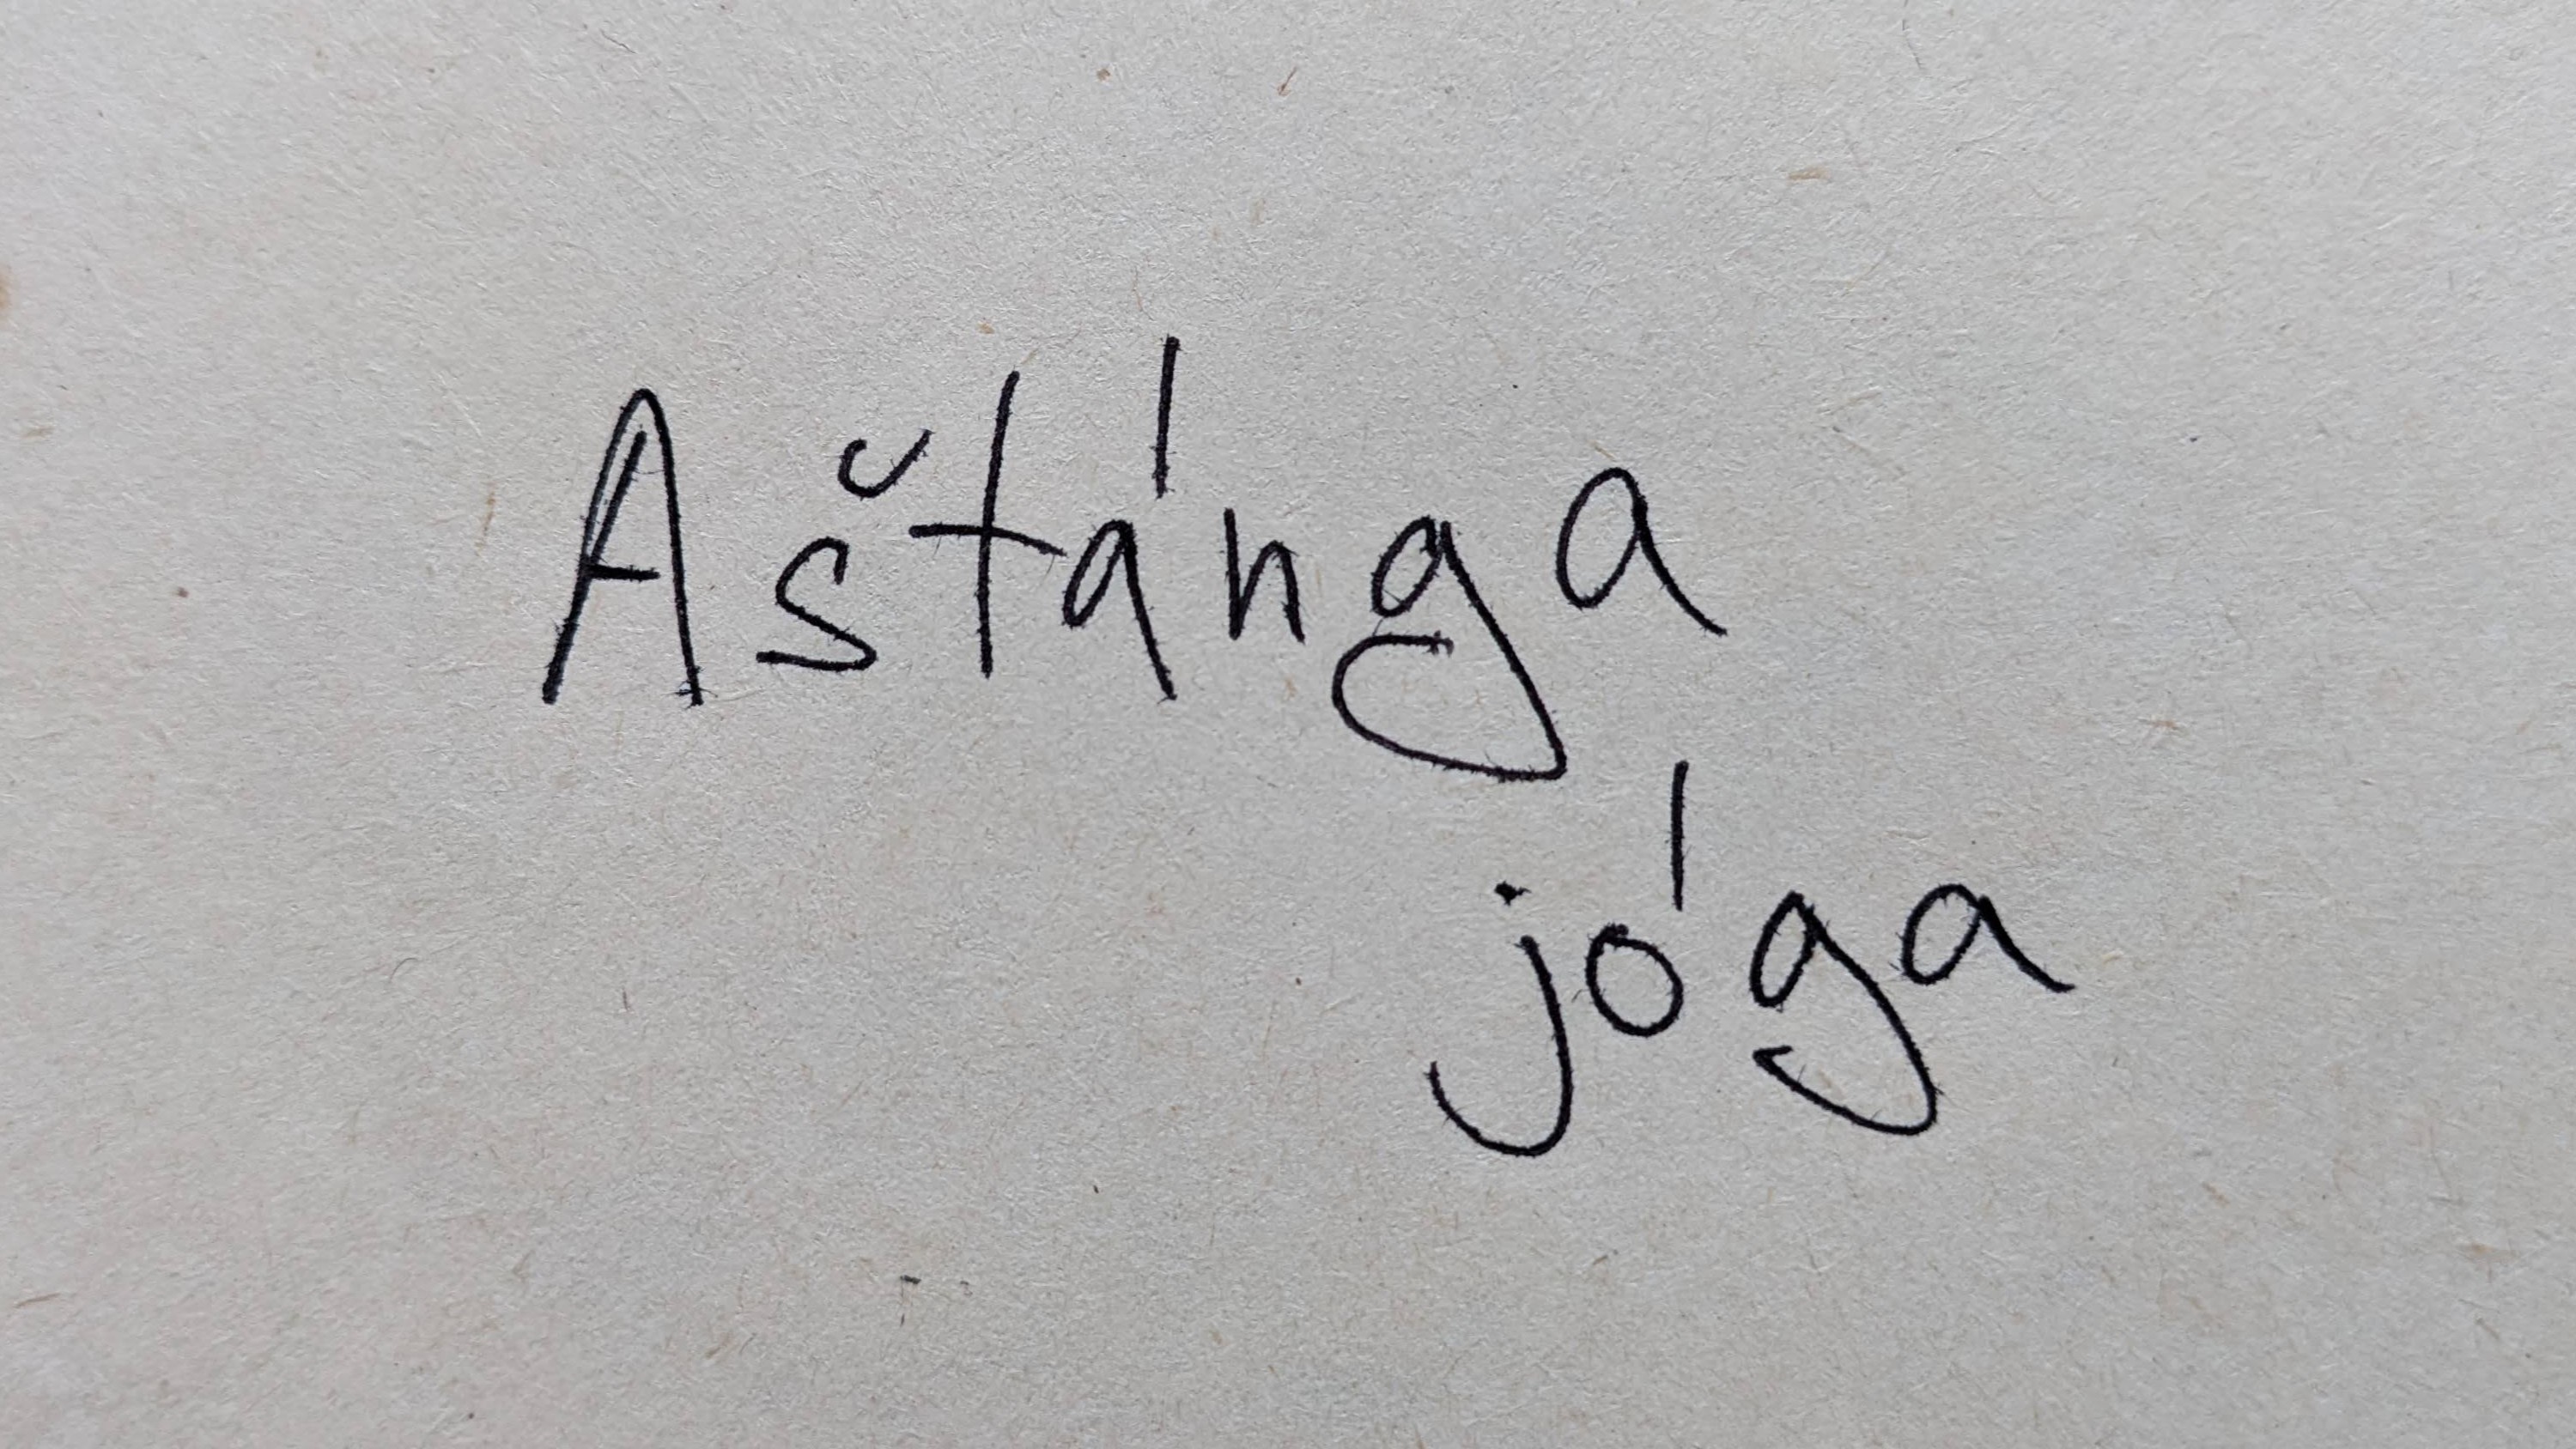 Aštánga
jóga